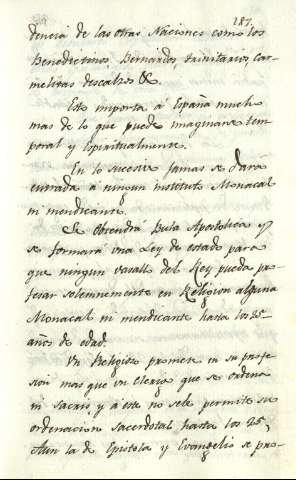 187,
dencia de las otras Naciones como los
Benedictinos, Bernardos, trinitarios, car-
melitas descalzos &.
Esto importa á España much
mas de lo que puede imaginarse tem
poral y espiritualmente.
En lo sucesivo jamas se dara
entrada á ningun instituto Monacal
ni mendicante.
Se obtendrá Bula Apostolica y
se formará una Ley de estado para
que ningun vasallo del Rey pueda pro-
fesar solemnemente en Religion alguna
Monacal ni mendicante hasta los 25-
años de edad.
Un Religioso promete en su profe-
sion mas que un clerigo que se ordena
in sacris, y á este no se le permite su
ordenacion sacerdotal hasta los 25,
Aun la de Epistola y Evangelio se pro-